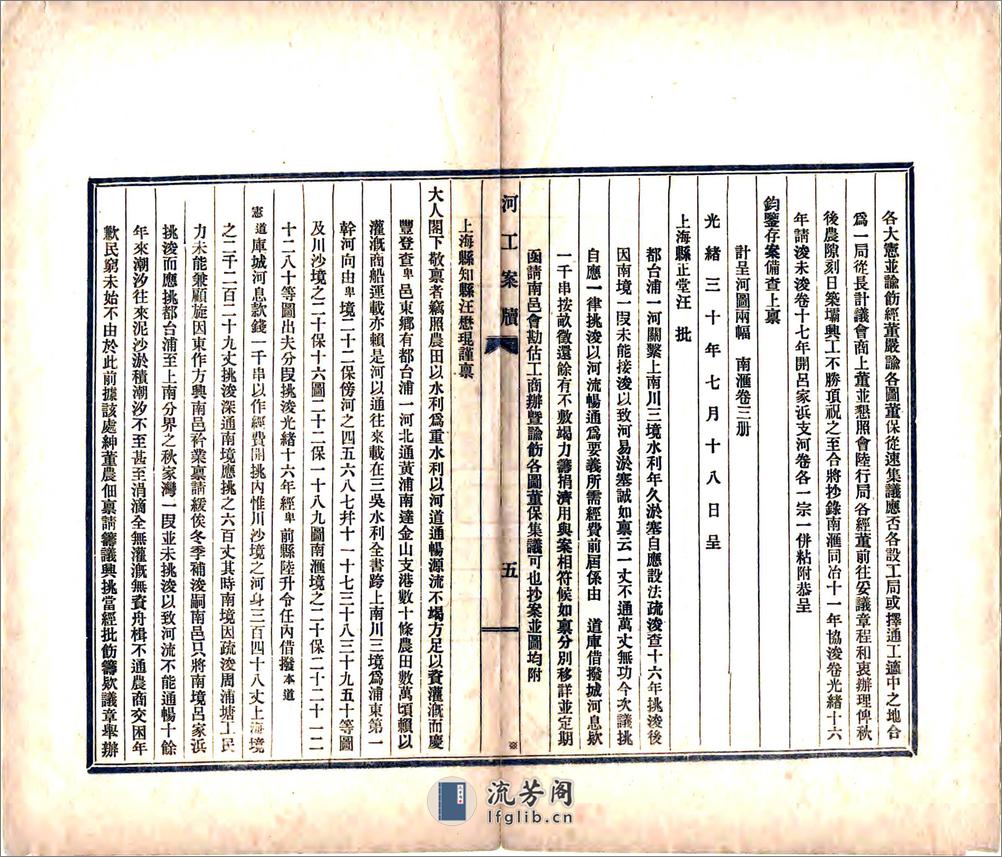 各大憲並諭飭經董嚴諭各圖董保從速集議應否各設工局或擇通工適中之地合
為一局從長計議會商上董並懇照會陸行局各經董前往妥議章程和衷辦理俾秋
後農隙刻日築壩興工不勝頂祝之至合將抄錄南滙同治十一年協浚卷光緒十六
年請浚未浚卷十七年開呂家浜支河卷各一宗一併粘附恭呈
鈞鑒存案備查上稟
計呈河圖兩幅　南滙卷三册
光緒三十年七月十八日呈
上海縣正堂汪　批
都台浦一河關繫上南川三境水利年久淤塞自應設法疏浚查十六年挑浚後
因南境一叚未能接浚以致河易淤塞誠如稟云一丈不通萬丈無功今次議挑
自應一律挑浚以河流暢通為要義所需經費前屆係由　道庫借撥城河息欵
一千串按畝徵還餘有不敷竭力籌捐濟用與案相符候如稟分別移詳並定期
函請南邑會勘估工商辦暨諭飭各圖董保集議可也抄案並圖均附
河工案牘　五
上海縣知縣汪懋琨謹稟
大人閣下敬稟者竊照農田以水利為重水利以河道通暢源流不竭方足以資灌漑而慶
豐登查卑邑東鄉有都台浦一河北通黃浦南達金山支港數十條農田數萬頃賴以
灌漑商船運載亦賴是河以通往來載在三吳水利全書跨上南川三境為浦東第一
幹河向由卑境二十二保傍河之四五六八七幷十一十七三十八三十九五十等圖
及川沙境之二十保十六圖二十二保一十八九圖南滙境之二十保二十二十一二
十二八十等圖出夫分叚挑浚光緒十六年經卑前縣陸升令任內借撥本道
憲道庫城河息款錢一千串以作經費開挑內惟川沙境之河身三百四十八丈上海境
之二千二百二十九丈挑浚深通南境應挑之六百丈其時南境因疏浚周浦塘工民
力未能兼顧旋因東作方興南邑矜業稟請緩俟冬季補浚嗣南邑只將南境呂家浜
挑浚而應挑都台浦至上南分界之秋家灣一叚並未挑浚以致河流不能通暢十餘
年來潮汐往來泥沙淤積潮汐不至甚至涓滴全無灌漑無資舟楫不通農商交困年
歉民窮未始不由於此前據該處紳董農佃稟請籌議興挑當經批飭籌欵議章舉辦
流芳阁
lfglib.cn